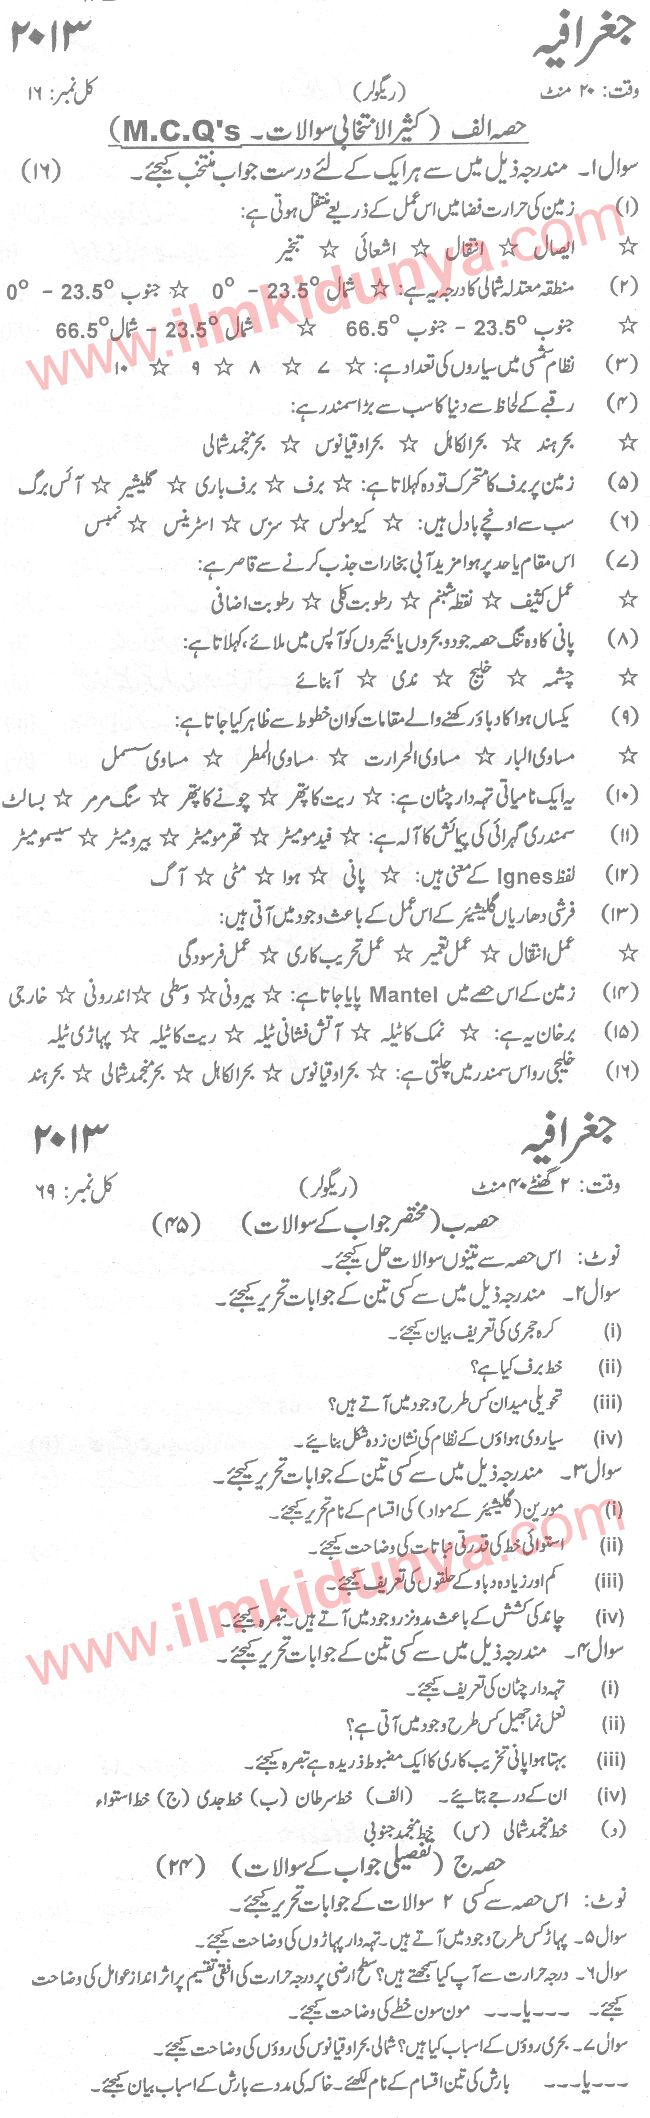 جغرافیہ ۲۰۱۳
وقت: ۲۰ منٹ (ریگولر) کل نمبر: ۱۶
حصہ الف (کثیر الانتخابی سوالات۔ M.C.Q's)
سوال ۱۔ مندرجہ ذیل میں سے ہر ایک کے لئے درست جواب منتخب کیجئے۔ (۱۶)
(۱) زمین کی حرارت فضا میں اس عمل کے ذریعے منتقل ہوتی ہے:
☆ ایصال ☆ انتقال ☆ اشعائی ☆ تبخیر
(۲) منطقہ معتدلہ شمالی کا درجہ یہ ہے: ☆ شمال 23.5° - 0° ☆ جنوب 23.5° - 0°
☆ جنوب 23.5° - جنوب 66.5° ☆ شمال 23.5° - شمال 66.5°
(۳) نظام شمسی میں سیاروں کی تعداد ہے: ☆ ۷ ☆ ۸ ☆ ۹ ☆ ۱۰
(۴) رقبے کے لحاظ سے دنیا کا سب سے بڑا سمندر ہے:
☆ بحر ہند ☆ بحر الکاہل ☆ بحر اوقیانوس ☆ بحر منجمد شمالی
(۵) زمین پر برف کا متحرک تودہ کہلاتا ہے: ☆ برف ☆ برف باری ☆ گلیشیر ☆ آئس برگ
(۶) سب سے اونچے بادل ہیں: ☆ کیومولس ☆ سزس ☆ اسٹریٹس ☆ نمبس
(۷) اس مقام یا حد پر ہوا مزید آبی بخارات جذب کرنے سے قاصر ہے:
☆ عمل کثیف ☆ نقطہ شبنم ☆ رطوبت کلی ☆ رطوبت اضافی
(۸) پانی کا وہ تنگ حصہ جو دو بحروں یا بحیروں کو آپس میں ملائے، کہلاتا ہے:
☆ چشمہ ☆ خلیج ☆ ندی ☆ آبنائے
(۹) یکساں ہوا کا دباؤ رکھنے والے مقامات کو ان خطوط سے ظاہر کیا جاتا ہے:
☆ مساوی البار ☆ مساوی الحرارت ☆ مساوی المطر ☆ مساوی سسمل
(۱۰) یہ ایک نامیاتی تہہ دار چٹان ہے: ☆ ریت کا پتھر ☆ چونے کا پتھر ☆ سنگ مرمر ☆ بسالٹ
(۱۱) سمندری گہرائی کی پیمائش کا آلہ ہے: ☆ فیدمومیٹر ☆ تھرمومیٹر ☆ بیرومیٹر ☆ سیسمومیٹر
(۱۲) لفظ Ignes کے معنی ہیں: ☆ پانی ☆ ہوا ☆ مٹی ☆ آگ
(۱۳) فرشی دھاریاں گلیشیئر کے اس عمل کے باعث وجود میں آتی ہیں:
☆ عمل انتقال ☆ عمل تعمیر ☆ عمل تخریب کاری ☆ عمل فرسودگی
(۱۴) زمین کے اس حصے میں Mantel پایا جاتا ہے: ☆ بیرونی ☆ وسطی ☆ اندرونی ☆ خارجی
(۱۵) برخان یہ ہے: ☆ نمک کا ٹیلہ ☆ آتش فشانی ٹیلہ ☆ ریت کا ٹیلہ ☆ پہاڑی ٹیلہ
(۱۶) خلیجی رو اس سمندر میں چلتی ہے: ☆ بحر اوقیانوس ☆ بحر الکاہل ☆ بحر منجمد شمالی ☆ بحر ہند
جغرافیہ ۲۰۱۳
وقت: ۲ گھنٹے ۴۰ منٹ (ریگولر) کل نمبر: ۶۹
حصہ ب (مختصر جواب کے سوالات) (۴۵)
نوٹ: اس حصہ سے تینوں سوالات حل کیجئے۔
سوال ۲۔ مندرجہ ذیل میں سے کسی تین کے جوابات تحریر کیجئے۔
(i) کرہ حجری کی تعریف بیان کیجئے۔
(ii) خط برف کیا ہے؟
(iii) تحویلی میدان کس طرح وجود میں آتے ہیں؟
(iv) سیاروی ہواؤں کے نظام کی نشان زدہ شکل بنائیے۔
سوال ۳۔ مندرجہ ذیل میں سے کسی تین کے جوابات تحریر کیجئے۔
(i) مورین (گلیشیئر کے مواد) کی اقسام کے نام تحریر کیجئے۔
(ii) استوائی خط کی قدرتی نباتات کی وضاحت کیجئے۔
(iii) کم اور زیادہ دباؤ کے حلقوں کی تعریف کیجئے۔
(iv) چاند کی کشش کے باعث مدوجزر وجود میں آتے ہیں۔ تبصرہ کیجئے۔
سوال ۴۔ مندرجہ ذیل میں سے کسی تین کے جوابات تحریر کیجئے۔
(i) تہہ دار چٹان کی تعریف کیجئے۔
(ii) نعل نما جھیل کس طرح وجود میں آتی ہے؟
(iii) بہتا ہوا پانی تخریب کاری کا ایک مضبوط ذریعہ ہے تبصرہ کیجئے۔
(iv) ان کے درجے بتائیے۔ (الف) خط سرطان (ب) خط جدی (ج) خط استواء
(د) خط منجمد شمالی (س) خط منجمد جنوبی
حصہ ج (تفصیلی جواب کے سوالات) (۲۴)
نوٹ: اس حصہ سے کسی ۲ سوالات کے جوابات تحریر کیجئے۔
سوال ۵۔ پہاڑ کس طرح وجود میں آتے ہیں۔ تہہ دار پہاڑوں کی وضاحت کیجئے۔
سوال ۶۔ درجہ حرارت سے آپ کیا سمجھتے ہیں؟ سطح ارضی پر درجہ حرارت کی افقی تقسیم پر اثر انداز عوامل کی وضاحت
کیجئے۔ ---یا--- مون سون خطے کی وضاحت کیجئے۔
سوال ۷۔ بحری روؤں کے اسباب کیا ہیں؟ شمالی بحر اوقیانوس کی روؤں کی وضاحت کیجئے۔
---یا--- بارش کی تین اقسام کے نام لکھئے۔ خاکہ کی مدد سے بارش کے اسباب بیان کیجئے۔
www.ilmkidunya.com
www.ilmkidunya.com